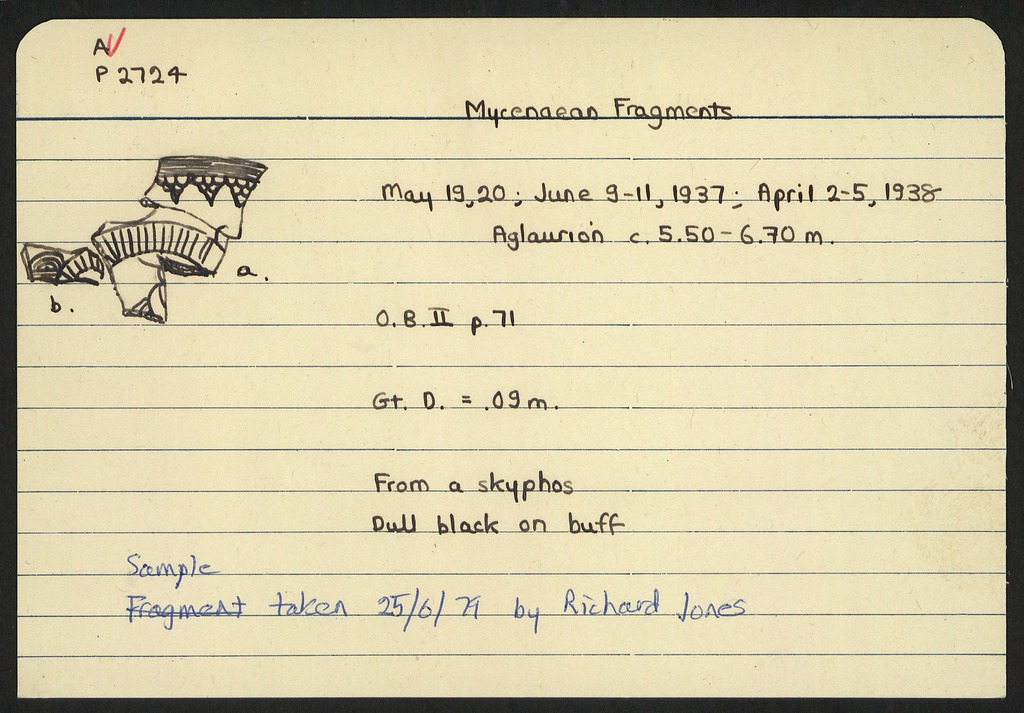 A
P 2724
Mycenaean Fragments
May 19,20; June 9-11, 1937; April 2-5, 1938
Aglaurion c. 5.50-6.70 m.
a.
b.
O.B. II p. 71
Gt. D. = .09 m.
From a skyphos
Dull black on buff
Sample
Fragment taken 25/6/79 by Richard Jones